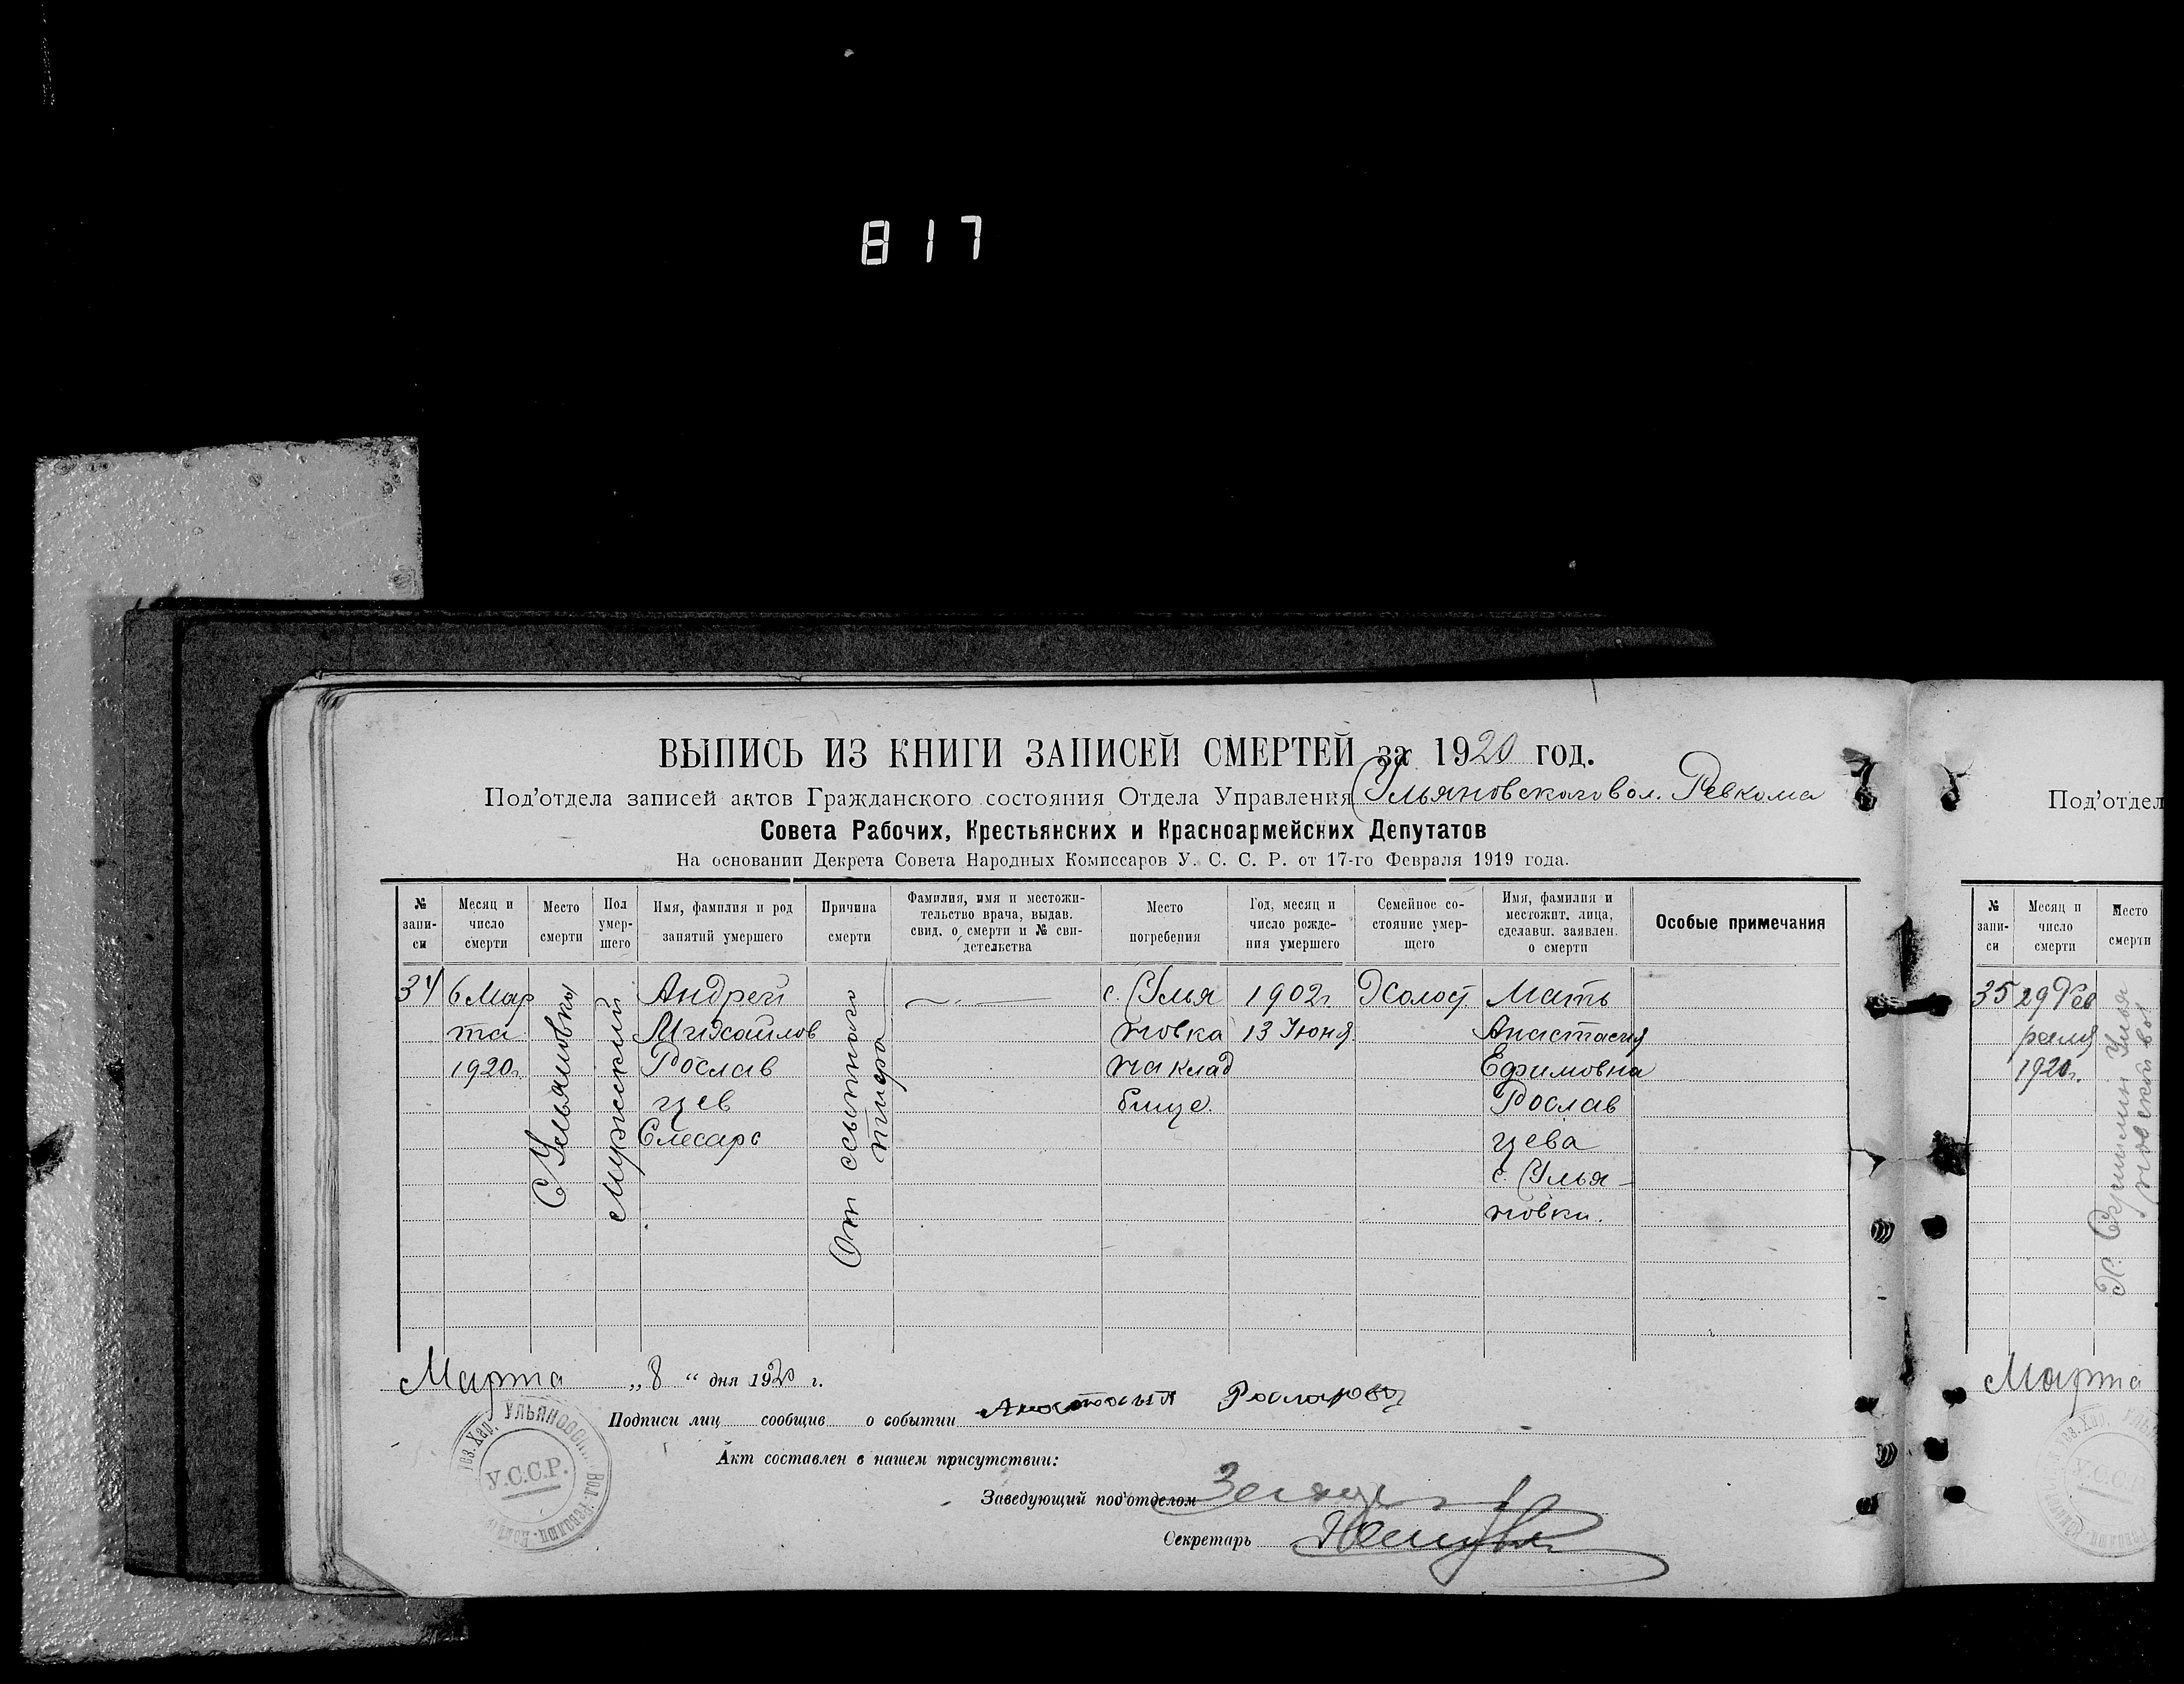 817
ВЫПИСЬ ИЗ КНИГИ ЗАПИСЕЙ СМЕРТЕЙ за 1920 год.
Под'отдела записей актов Гражданского состояния Отдела Управления Ульяновского вол. Ревкома
Совета Рабочих, Крестьянских и Красноармейских Депутатов
На основании Декрета Совета Народных Комиссаров У. С. С. Р. от 17-го Февраля 1919 года.
№ запи-си
Месяц и число смерти
Место смерти
Пол умер-шего
Имя, фамилия и род занятий умершего
Причина смерти
Фамилия, имя и местожи-тельство врача, выдав. свид. о смерти и № сви-детельства
Место погребения
Год, месяц и число рожде-ния умершего
Семейное со-стояние умер-щего
Имя, фамилия и местожит. лица, сделавш. заявлен. о смерти
Особые примечания
34
6 Мар
та
1920г.
С. Ульяновка
Мужский
Андрей
Михайлов
Рослав
цев
Слесарь
От сыпного
тифа
с. Улья
новка
на клад
бище.
1902г.
13 Июня
Холост
Мать
Анастасия
Ефимовна
Рослав
цева
с. Улья-
новки.
Марта „8“ дня 1920 г.
Подписи лиц сообщив о событии Анастасия
Акт составлен в нашем присутствии:
Заведующий под'отделом
Секретарь
УЛЬЯНОВСК
Вол.
уез. Хар.
У.С.С.Р.
Под'отдел
№ запи-си
Месяц и число смерти
Место смерти
35
29 Фев
раля
1920г.
Х.
Улья
новской вол
Марта
У.С.С.Р.